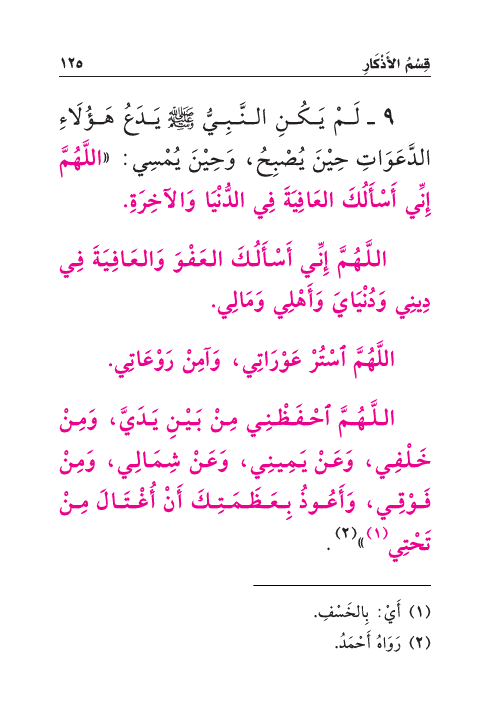 قِسْمُ الأَذْكَارِ ١٢٥
٩ ـ لَمْ يَكُنِ النَّبِيُّ ﷺ يَدَعُ هَؤُلَاءِ
الدَّعَوَاتِ حِيْنَ يُصْبِحُ، وَحِيْنَ يُمْسِي: «اللَّهُمَّ
إِنِّي أَسْأَلُكَ العَافِيَةَ فِي الدُّنْيَا وَالآخِرَةِ.
اللَّهُمَّ إِنِّي أَسْأَلُكَ العَفْوَ وَالعَافِيَةَ فِي
دِينِي وَدُنْيَايَ وَأَهْلِي وَمَالِي.
اللَّهُمَّ ٱسْتُرْ عَوْرَاتِي، وَآمِنْ رَوْعَاتِي.
اللَّهُمَّ ٱحْفَظْنِي مِنْ بَيْنِ يَدَيَّ، وَمِنْ
خَلْفِي، وَعَنْ يَمِينِي، وَعَنْ شِمَالِي، وَمِنْ
فَوْقِي، وَأَعُوذُ بِعَظَمَتِكَ أَنْ أُغْتَالَ مِنْ
تَحْتِي(١)»(٢).
(١) أَيْ: بِالخَسْفِ.
(٢) رَوَاهُ أَحْمَدُ.